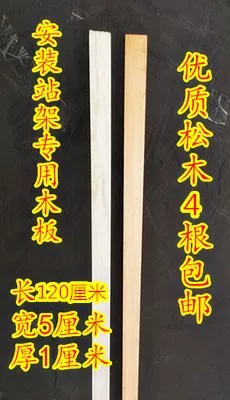 安装站架专用木板
优质松木4根包邮
长120厘米
宽5厘米
厚1厘米